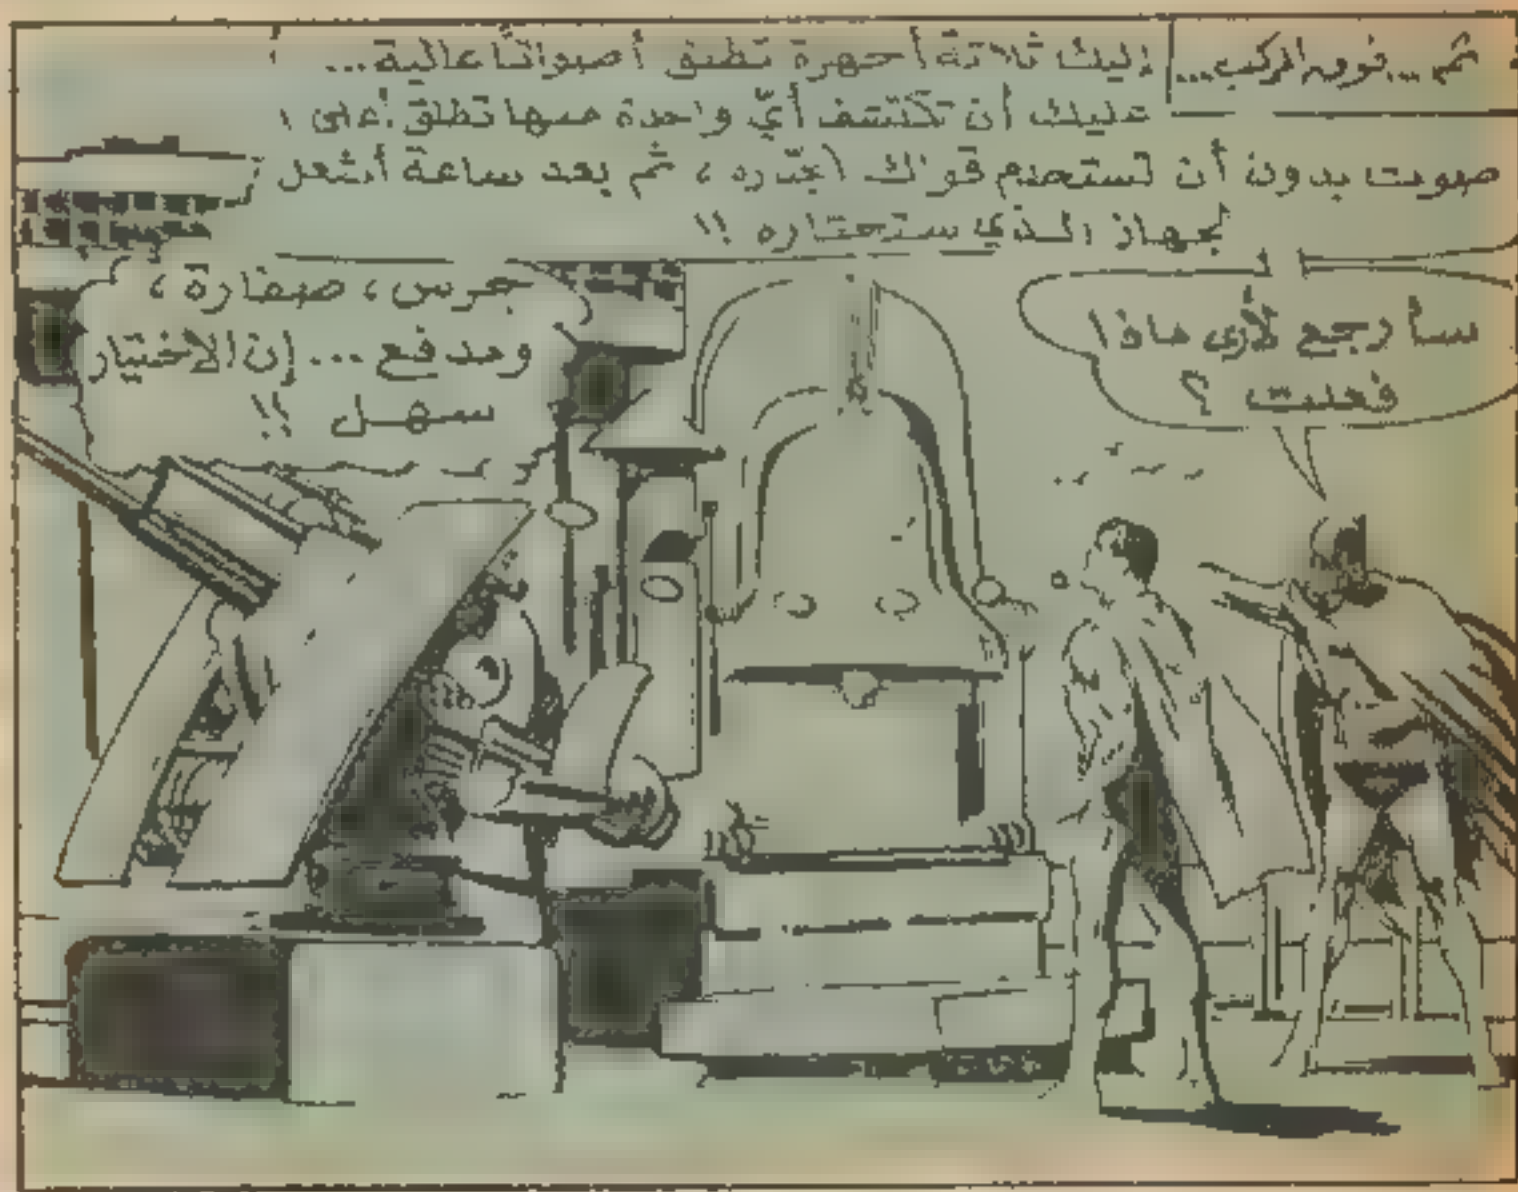 ثم... فوق المركب...
إليك ثلاثة أجهزة تطلق أصواتاً عالية...
عليك أن تكتشف أيّ واحدة منها تطلق أعلى
صوت بدون أن تستخدم قواك الجبّاره ، ثم بعد ساعة أشعل
لجهاز الذي ستختاره !!
سأرجع لأرى ماذا
فعلت ؟
جرس ، صفارة ،
ومدفع ... إن الاختيار
سهل !!